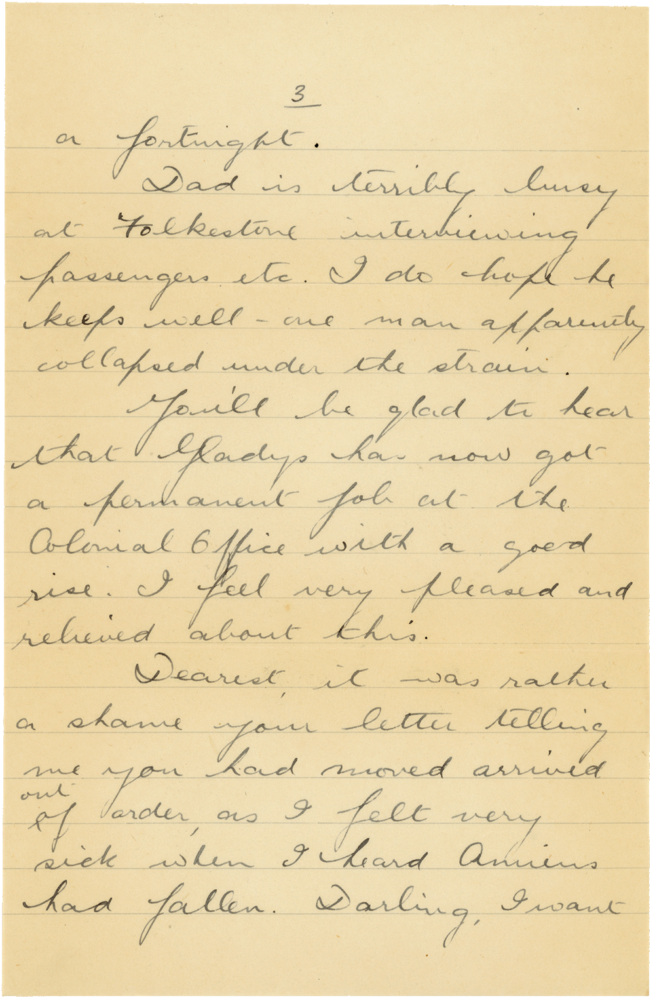 3
a fortnight.
Dad is terribly busy
at Folkestone interviewing
passengers etc. I do hope he
keeps well - one man apparently
collapsed under the strain.
You'll be glad to hear
that Gladys has now got
a permanent job at the
Colonial Office with a good
rise. I feel very pleased and
relieved about this.
Dearest, it was rather
a shame your letter telling
me you had moved arrived
out
of order, as I felt very
sick when I heard Amiens
had fallen. Darling, I want